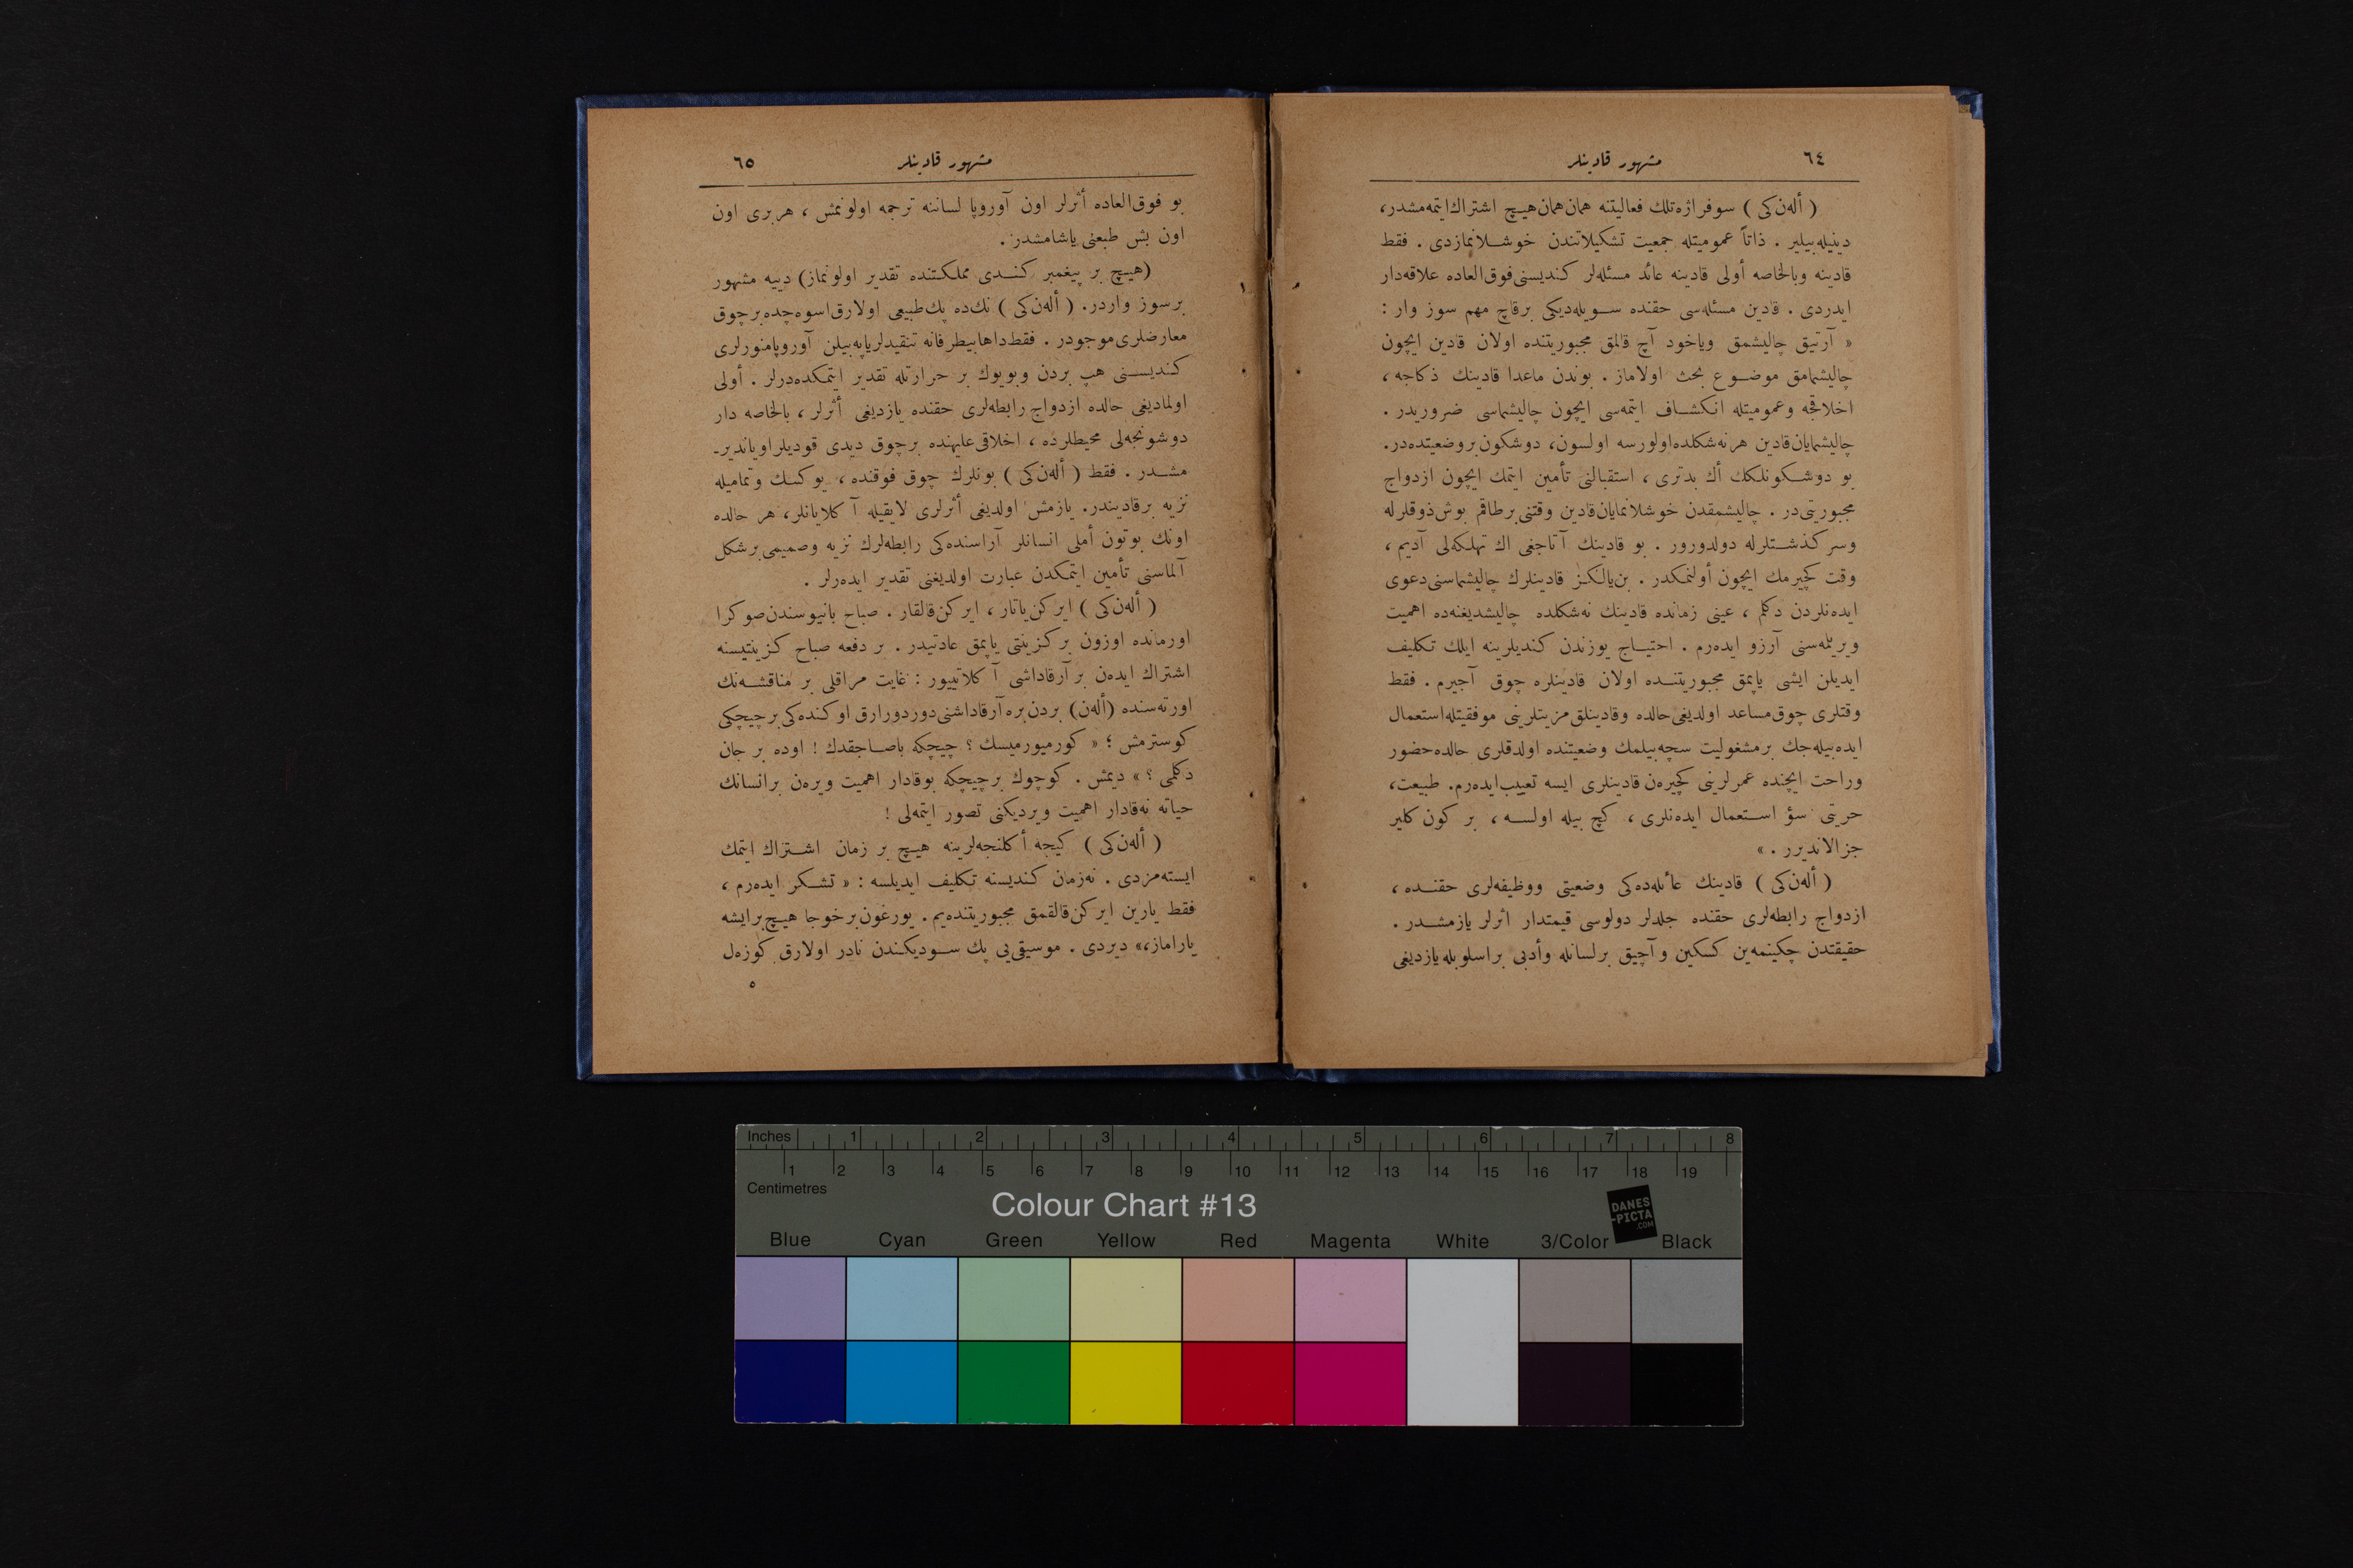 ٦٤
مشهور قادینلر
( أله‌ن‌كی ) سوفراژه‌تلك فعالیتنه همان‌همان‌هیچ اشتراك‌ایتمه‌مشدر،
دینیله‌بیلیر . ذاتاً عمومیتله جمعیت تشكیلاتندن خوشلانمازدی . فقط
قادینه وبالخاصه أولی قادینه عائد مسئله‌لر كندیسنی‌فوق‌العاده علاقه‌دار
ایدردی . قادین مسئله‌سی حقنده سویله‌دیكی برقاچ مهم سوز وار :
« آرتیق چالیشمق ویاخود آچ قالمق مجبوریتنده اولان قادین ایچون
چالیشمامق موضوع بحث اولاماز . بوندن ماعدا قادینك ذكاجه ،
اخلاقجه وعمومیتله انكشاف ایتمه‌سی ایچون چالیشماسی ضروریدر .
چالیشمایان‌قادین هرنه‌شكلده‌اولورسه اولسون، دوشكون‌بروضعیتده‌در.
بو دوشكونلكك أك بدتری ، استقبالنی تأمین ایتمك ایچون ازدواج
مجبوریتی‌در . چالیشمقدن خوشلانمایان‌قادین وقتنی‌برطاقم بوش‌ذوقلرله
وسركذشتلرله دولدورور . بو قادینك آتاجغی اك تهلكه‌لی آدیم ،
وقت كچیرمك ایچون أولنمكدر . بن‌یالكز قادینلرك چالیشماسنی‌دعوی
ایده‌نلردن دكلم ، عینی زمانده قادینك نه‌شكلده چالیشدیغنه‌ده اهمیت
ویریلمه‌سنی آرزو ایده‌رم . احتیاج یوزندن كندیلرینه ایلك تكلیف
ایدیلن ایشی یاپمق مجبوریتنده اولان قادینلره چوق آجیرم . فقط
وقتلری چوق‌مساعد اولدیغی‌حالده وقادینلق‌مزیتلرینی موفقیتله‌استعمال
ایده‌بیله‌جك برمشغولیت سچه‌بیلمك وضعیتنده اولدقلری حالده‌حضور
وراحت ایچنده عمرلرینی كچیره‌ن قادینلری ایسه تعییب‌ایده‌رم. طبیعت،
حریتی سؤ استعمال ایده‌نلری ، كچ بیله اولسه ، بر كون كلیر
جزالاندیرر . »
( أله‌ن‌كی ) قادینك عائله‌ده‌كی وضعیتی ووظیفه‌لری حقنده ،
ازدواج رابطه‌لری حقنده جلدلر دولوسی قیمتدار اثرلر یازمشدر .
حقیقتدن چكینمه‌ین كسكین و آچیق برلسانله وأدبی براسلوبله‌یازدیغی
مشهور قادینلر
٦٥
بو فوق‌العاده أثرلر اون آوروپا لساننه ترجمه اولونمش ، هربری اون
اون بش طبعنی‌یاشامشدر .
(هیچ بر پیغمبر كندی مملكتنده تقدیر اولونماز) دییه مشهور
برسوز واردر. ( أله‌ن‌كی ) نك‌ده پك‌طبیعی اولارق‌اسوه‌چده‌برچوق
معارضلری‌موجودر . فقط‌داهابیطرفانه تنقیدلریاپه‌بیلن آوروپامنورلری
كندیسنی هپ بردن وبویوك بر حرارتله تقدیر ایتمكده‌درلر . أولی
اولمادیغی حالده ازدواج رابطه‌لری حقنده یازدیغی أثرلر ، بالخاصه دار
دوشونجه‌لی محیطلرده ، اخلاقی‌علیهنده برچوق دیدی قودیلراویاندیر-
مشدر . فقط ( أله‌ن‌كی ) بونلرك چوق فوقنده ، یوكسك وتمامیله
نزیه برقادیندر. یازمش اولدیغی أثرلری لایقیله آكلایانلر، هر حالده
اونك بوتون أملی انسانلر آراسنده‌كی رابطه‌لرك نزیه وصمیمی‌برشكل
آلماسنی تأمین ایتمكدن عبارت اولدیغنی تقدیر ایده‌رلر .
( أله‌ن‌كی ) ایركن‌یاتار ، ایركن‌قالقار . صباح بانیوسندن‌صوكرا
اورمانده اوزون بر كزینتی یاپمق عادتیدر . بر دفعه صباح كزینتیسنه
اشتراك ایده‌ن بر آرقاداشی آكلاتییور : غایت مراقلی بر مناقشه‌نك
اورته‌سنده (أله‌ن) بردن‌بره آرقاداشنی‌دوردورارق اوكنده‌كی‌برچیچكی
كوسترمش ؛ « كورمیورمیسك ؟ چیچكه باصاجقدك ! اوده بر جان
دكلمی ؟ » دیمش . كوچوك برچیچكه بوقادار اهمیت ویره‌ن برانسانك
حیاته نه‌قادار اهمیت ویردیكنی تصور ایتمه‌لی !
( أله‌ن‌كی ) كیجه أكلنجه‌لرینه هیچ بر زمان اشتراك ایتمك
ایسته‌مزدی . نه‌زمان كندیسنه تكلیف ایدیلسه : « تشكر ایده‌رم ،
فقط یارین ایركن‌قالقمق مجبوریتنده‌یم. یورغون‌برخوجا هیچ‌برایشه
یاراماز،» دیردی . موسیقی‌یی پك سودیكندن نادر اولارق كوزه‌ل
٥
Inches 1 2 3 4 5 6 7 8
1 2 3 4 5 6 7 8 9 10 11 12 13 14 15 16 17 18 19
Centimetres
Colour Chart #13
DANES
-PICTA
.COM
Blue Cyan Green Yellow Red Magenta White 3/Color Black